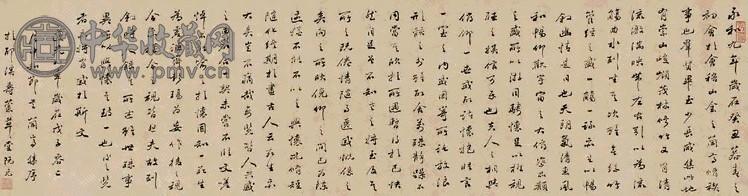 永和九年歲在癸丑暮春
初會於會稽山陰之蘭亭脩禊
事也羣賢畢至少長咸集此地
有崇山峻領茂林脩竹又有清
流激湍映帶左右引以為流
觴曲水列坐其次雖無絲竹
管絃之盛一觴一詠亦足以暢
敘幽情是日也天朗氣清惠風
和暢仰觀宇宙之大俯察品類
之盛所以遊目騁懷足以極視聽
之娛信可樂也夫人之相與
俯仰一世或取諸懷抱悟言
一室之內或因寄所託放浪
形骸之外雖趣舍萬殊靜躁不
同當其欣於所遇暫得於己快
然自足不知老之將至及其
所之既惓情隨事遷感慨係之
矣向之所欣俛仰之間已為陳
迹猶不能不以之興懷況脩短
隨化終期於盡古人云死生亦
大矣豈不痛哉每攬昔人興感
之由若合一契未嘗不臨文嗟
悼不能喻之於懷固知一死生
為虛誕齊彭殤為妄作後之視
今亦由今之視昔悲夫故列
敘時人錄其所述雖世殊事
異所以興懷其致一也後之覽
者亦將有感於斯文
歲在戊子
蘭亭集序
阮元
中华收藏网
www.pmv.cn